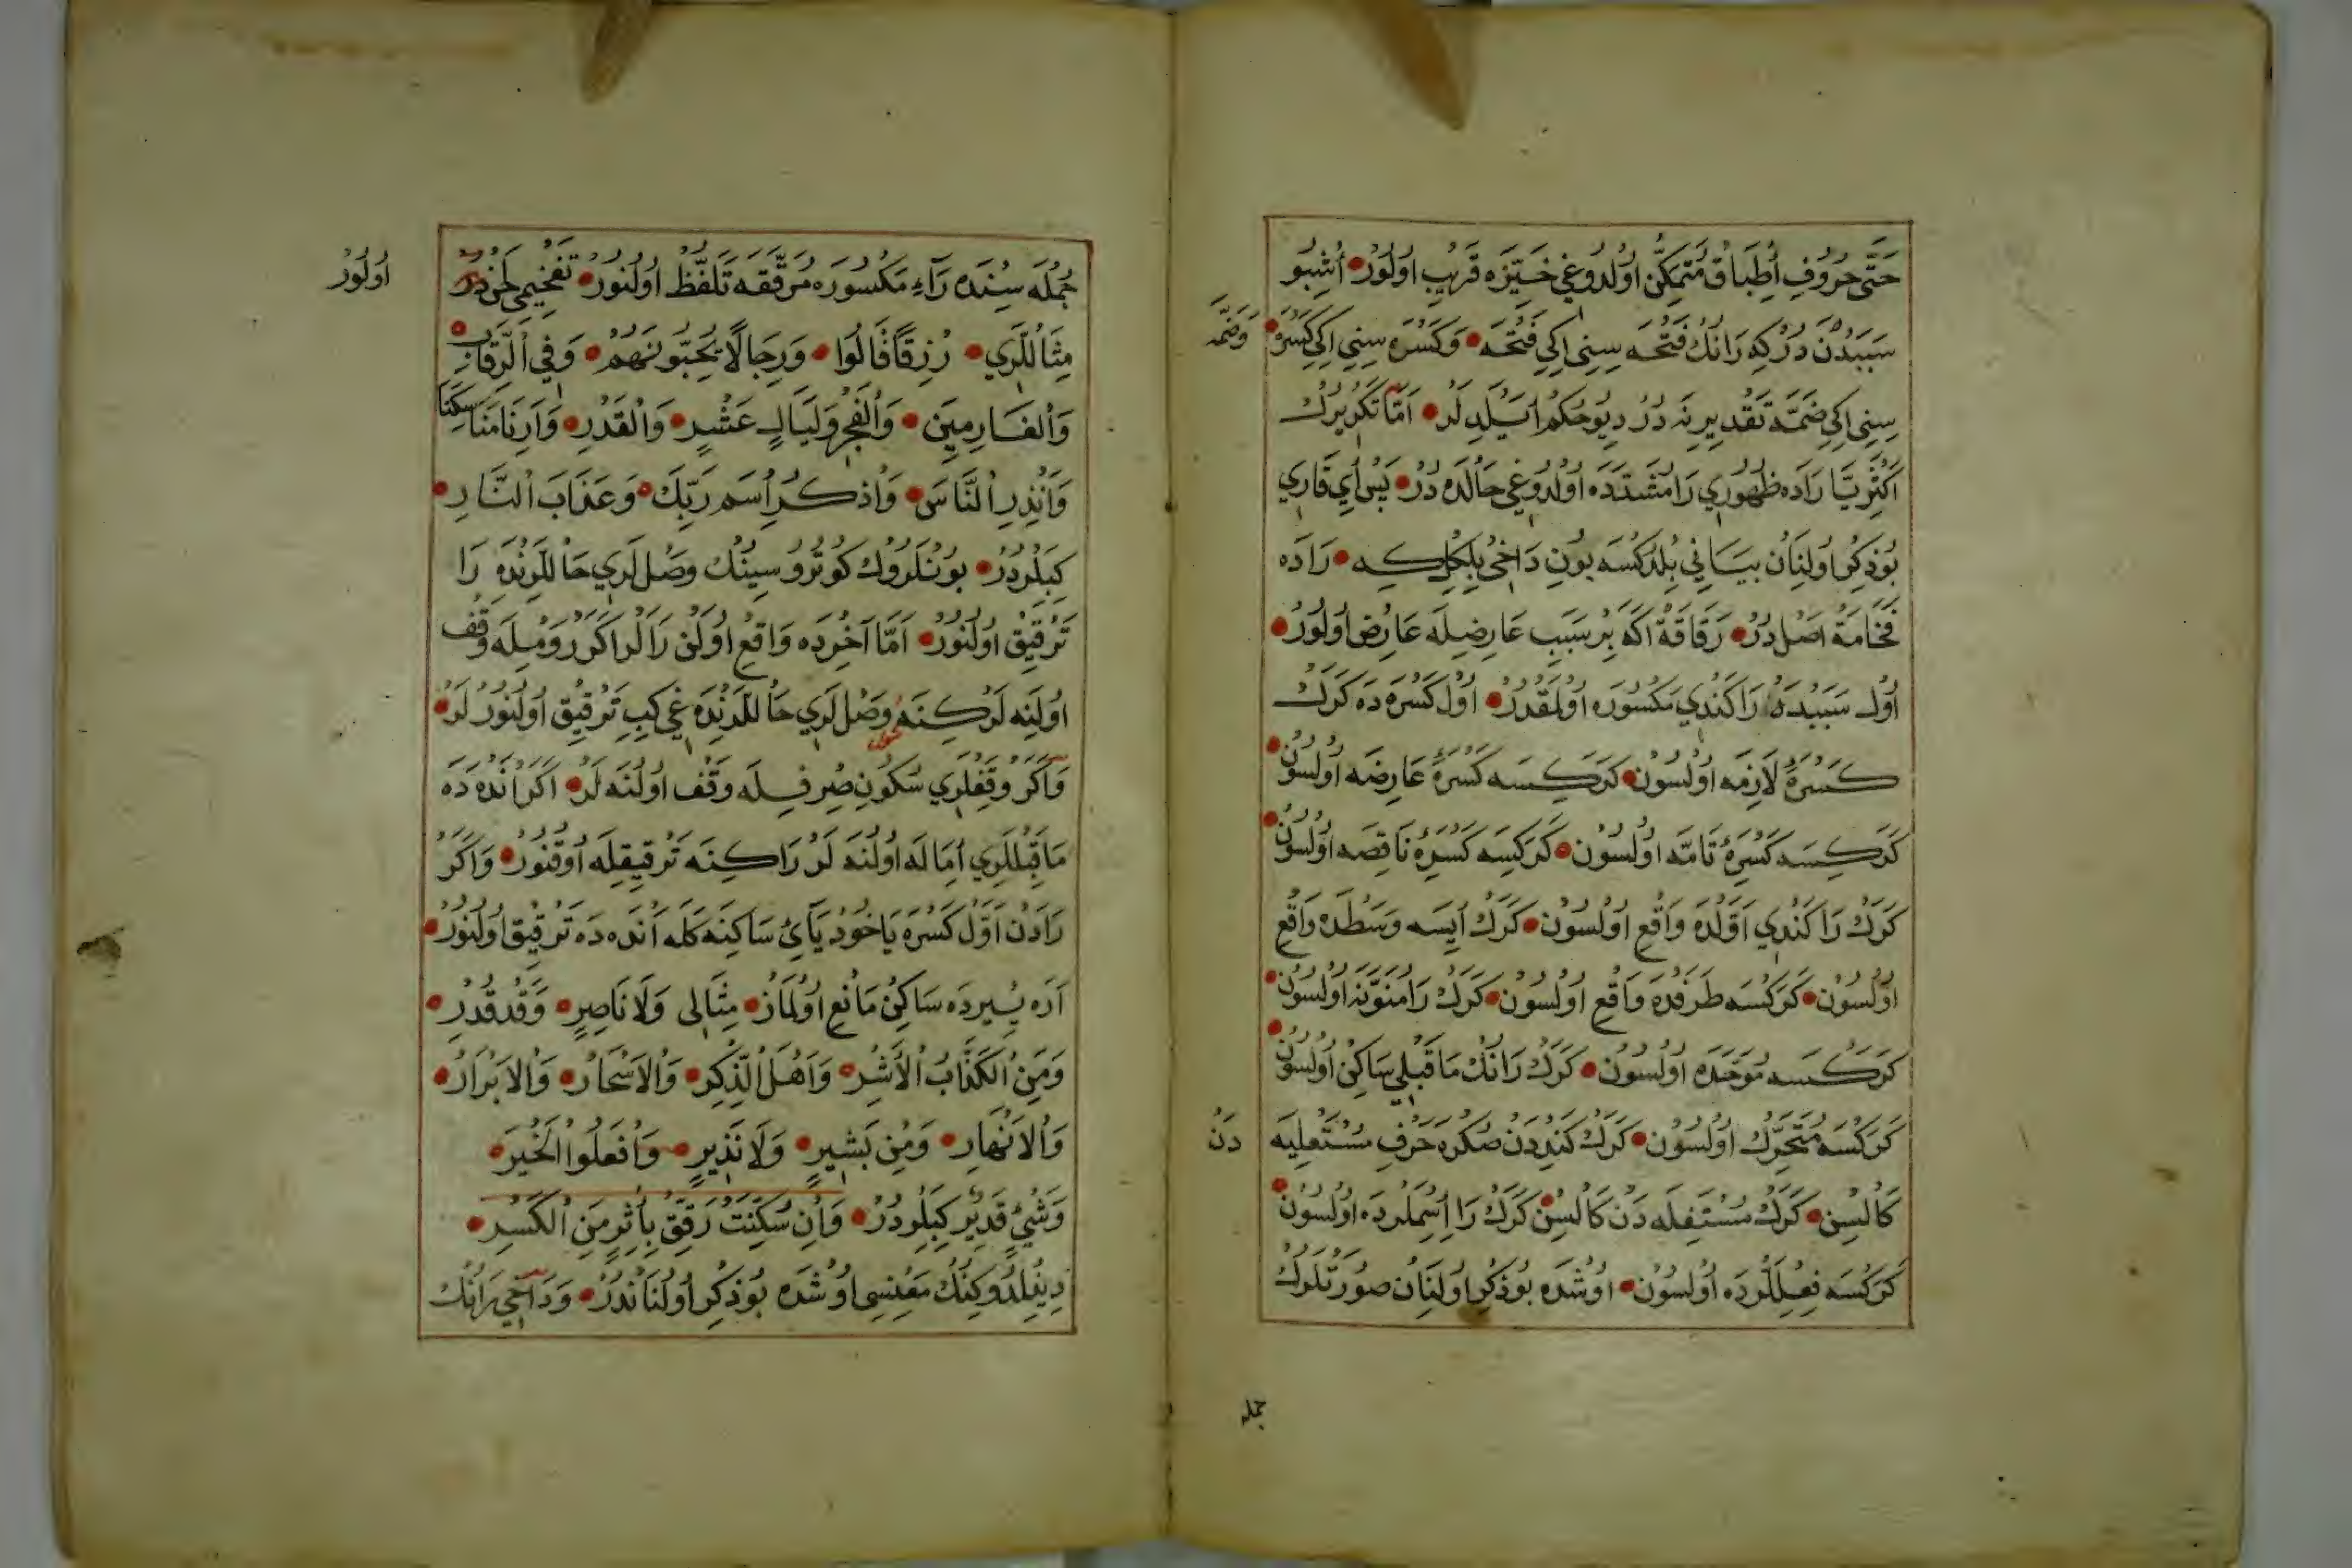 حَتَّى حُرُوفِ اُطِبَاقْ مُتَمَكِّنْ اوُلدُوغِي حَيِّزَه قَرِيبْ اوُلوُرْ اُشِبُو
سَبَبْدَنْ دُرْ كِه رَانُكْ فَتْحَه سِنِي اِكِي فَتْحَه وَكَسْرَه سِنِي اِكِي كَسْرَه
وَضَمَّه
سِنِي اِكِي ضَمَّه تَقْدِيرِنَه دُرْ دِيُو حُكُمْ اَيْلَدِ لَرْ اَمَّا تَكْرِيرُكْ
اَكْثَرِيَّا رَادَه ظُهُورِي رَا مُشَدَّدَه اوُلدُوغِي حَالْدَه دُرْ پَسْ اَيْ قَارِي
بُو ذِكِرْ اوُلِنَانْ بَيَانِي بِلْدُكْسَه بُونِ دَاخِي بِلْگِلْ كِه رَادَه
فَخَامَة اَصْلْ دُرْ رَقَاقَة اَكَه بِرْ سَبَبِ عَارِضِلَه عَارِضْ اوُلوُرْ
اوُلْ سَبَبْدَه رَا كَنْدِي مَكْسُورَه اوُلْمَقْدُرْ اوُلْ كَسْرَه دَه كَرَكْ
كَسْرَۀ لَازِمَه اوُلسُونْ كَرَكِسَه كَسْرَۀ عَارِضَه اوُلسُونْ
كَرَكِسَه كَسْرَۀ تَامَّه اوُلسُونْ كَرَكِسَه كَسْرَۀ نَاقِصَه اوُلسُونْ
كَرَكْ رَا كَنْدِي اَوَّلْدَه وَاقِعْ اوُلسُونْ كَرَكْ اَيْسَه وَسَطْدَه وَاقِعْ
اوُلسُونْ كَرَكْسَه طَرَفْدَه وَاقِعْ اوُلسُونْ كَرَكْ رَا مُنَوَّنَه اوُلسُونْ
كَرَكْسَه مُوَحَّدَه اوُلسُونْ كَرَكْ رَانُكْ مَا قَبْلِي سَاكِنْ اوُلسُونْ
كَرَكْسَه مُتَحَرِّكْ اوُلسُونْ كَرَكْ كَنْدِدَنْ صُكْرَه حَرْفِ مُسْتَعْلِيَه
دَنْ
كَالسِنْ كَرَكْ مُسْتَفِلَه دَنْ كَالسِنْ كَرَكْ رَا اِسِمْلَرْدَه اوُلسُونْ
كَرَكْسَه فِعِلْلَرْدَه اوُلسُونْ اوُشْدَه بُو ذِكِرْ اوُلِنَانْ صُورَتْلَرُكْ
جمله
جُمْلَه سِنْدَه رَآءِ مَكْسُورَه مُرَقَّقَه تَلَفُّظْ اوُلنُورْ تَفْخِيمِي لَحْنْ دُرْ
اوُلوُرْ
مِثَاللَرِي رِزْقًا قَالُوا وَرِجَالًا يُحِبُّونَهُمْ وَفِي الرِّقَابِ
وَالْغَارِمِينَ وَالْفَجْرِ وَلَيَالٍ عَشْرٍ وَالْقَدْرِ وَاَرِنَا مَنَاسِكَنَا
وَاَنْذِرِ النَّاسَ وَاذْكُرِ اسْمَ رَبِّكَ وَعَذَابَ النَّارِ
كِبِلَرْدُرْ بُونْلَرُوكْ كُوتُرُوسِينُكْ وَصْل لَرِي حَاللَرِنْدَه رَا
تَرْقِيقْ اوُلنُورْ اَمَّا آخِرْدَه وَاقِعْ اوُلَنْ رَالَرْ اَكَرْ رَوْمِيلَه وَقْف
اوُلَنَه لَرْ كِنَه وَصْل لَرِي حَاللَرِنْدَه غِي كِبِ تَرْقِيقْ اوُلنُورْ لَرْ
وَاَكَرْ وَقْفِلَرِي سُكُونِ صِرْفِيلَه وَقْف اوُلنَه لَرْ اَكَرْ اَنْدَه دَه
مَا قَبْللَرِي اِمَالَه اوُلنَه لَرْ رَا كِنَه تَرْقِيقِلَه اوُقُنُورْ وَاَكَرْ
رَادَنْ اَوَّلْ كَسْرَه يَا خُودْ يَآيِ سَاكِنَه كَلَه اَنْدَه دَه تَرْقِيقْ اوُلنُورْ
اَرَه يِيرْدَه سَاكِنْ مَانِعْ اوُلمَازْ مِثَالِى وَلَا نَاصِرٍ وَقَدْ قُدِرَ
وَمَنِ الْكَذَّابُ الْاَشِرُ وَاَهْلَ الذِّكْرِ وَالْاَسْحَارْ وَالْاَبْرَارْ
وَالْاَنْهَارِ وَمِنْ بَشِيرٍ وَلَا نَذِيرٍ وَافْعَلُوا الْخَيْرَ
وَشَيْءٍ قَدِيرْ كِبِلَرْدُرْ وَاِنْ سَكَنَتْ رَقِّقْ بِاَثَرٍ مِنَ الْكَسْرِ
دِينِلْدُوكِنُكْ مَعْنِسِى اوُشْدَه بُو ذِكِرْ اوُلنَانْدُرْ وَدَاخِي رَانُكْ